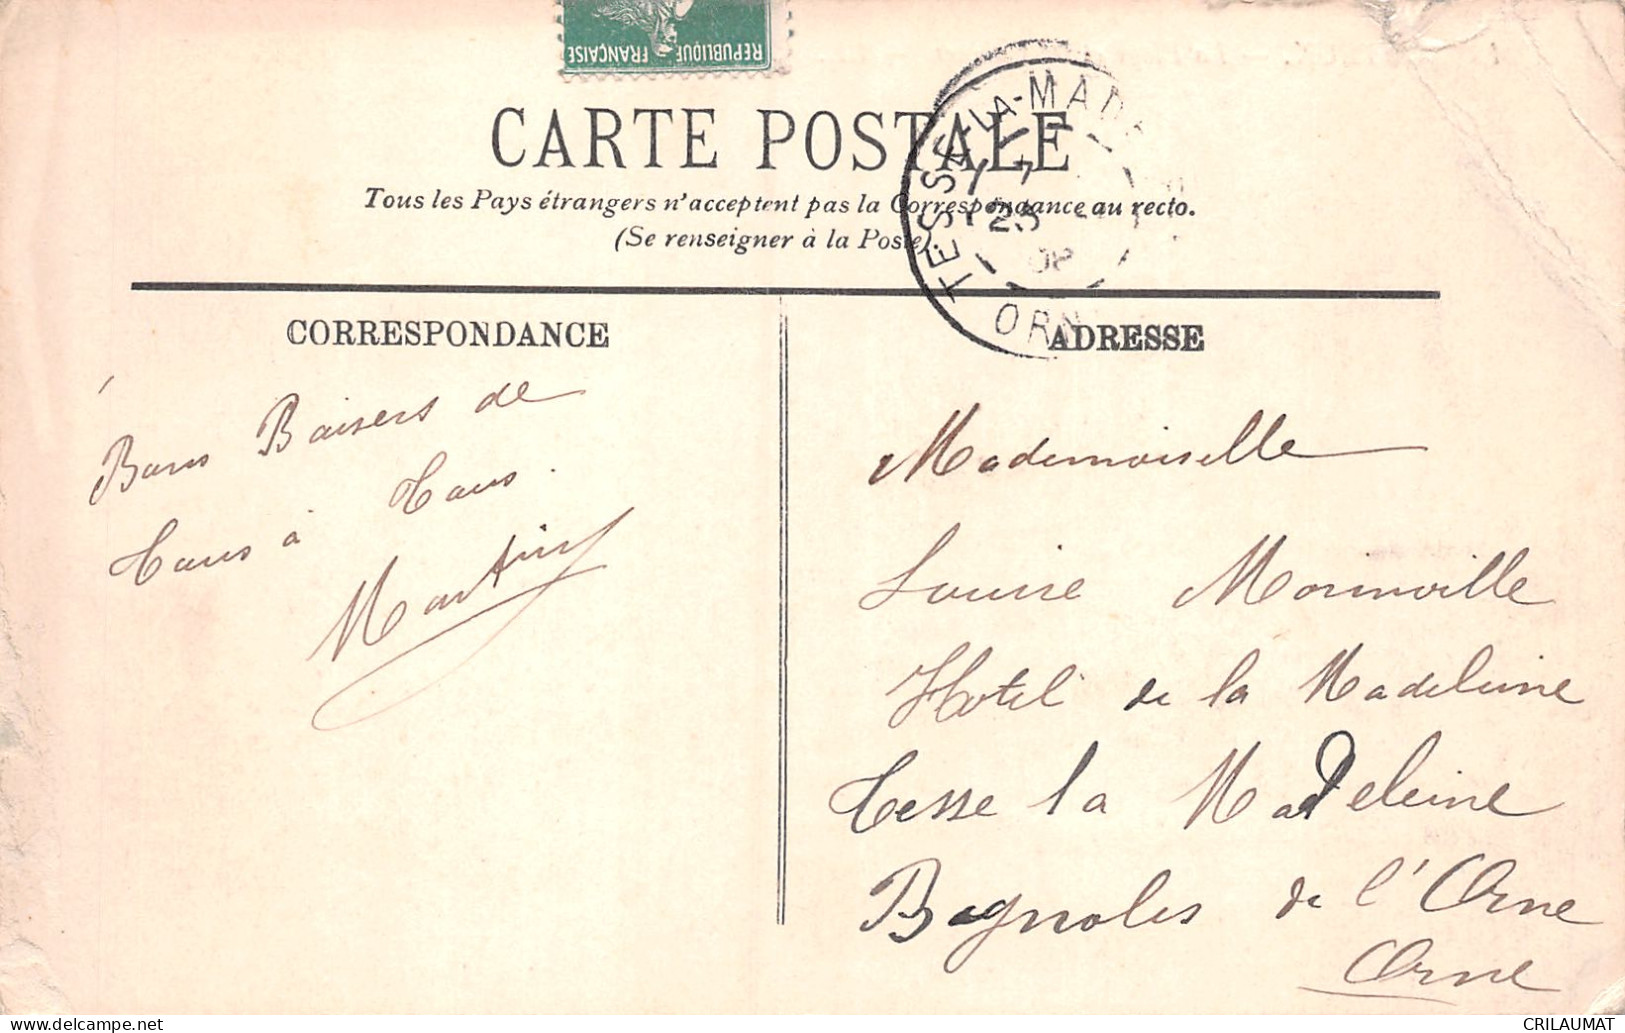 REPUBLIQUE FRANÇAISE
CARTE POSTALE
Tous les Pays étrangers n'acceptent pas la Correspondance au recto.
(Se renseigner à la Poste).
TESSÉ-LA-MAD
23
08
ORN
CORRESPONDANCE
Bons Baisers de
Tous à Tous.
Martin
ADRESSE
Mademoiselle
Louise Morinville
Hotel de la Madeleine
Tesse la Madeleine
Bagnoles de l'Orne
Orne
CRILAUMAT